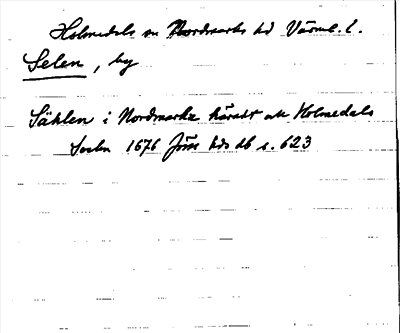 Holmedals sn Nordmarks hd Värml. l.
Selen, by
Sählen i Nordmarks häradt och Holmedals
Sochn 1676 Jöns hds db s. 623